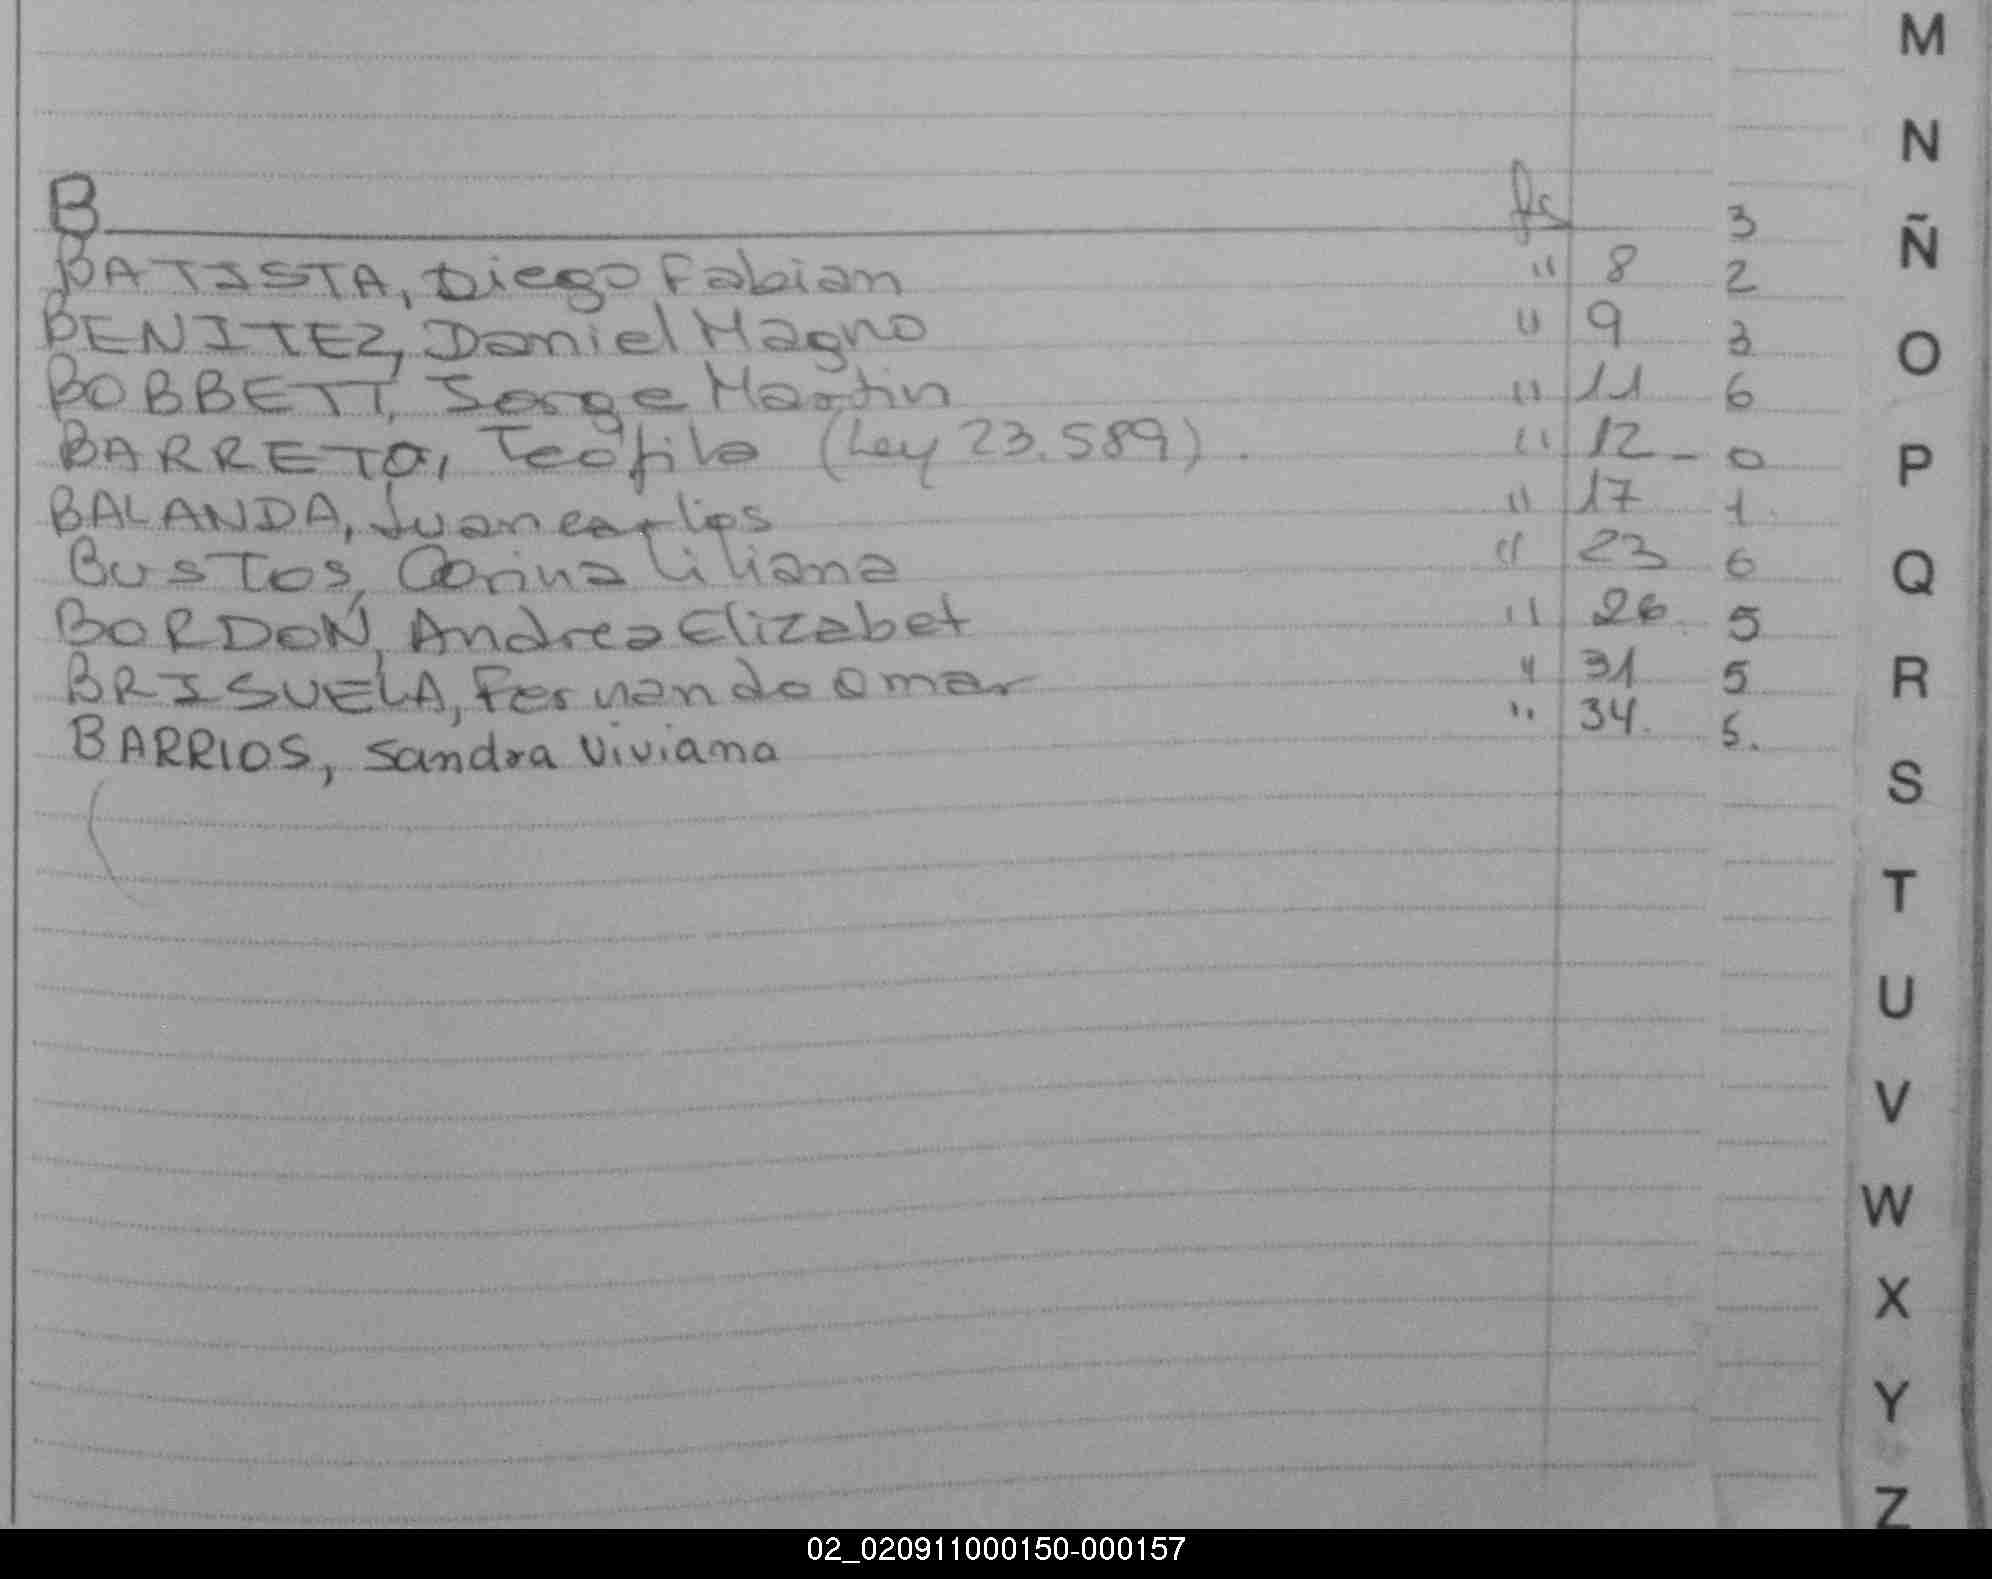 B fs
BATISTA, Diego Fabian " 8
BENITEZ, Daniel Magno " 9
BOBBETT, Jorge Martin " 11
BARRETO, Teófilo (Ley 23.589). " 12 -
BALANDA, Juan Carlos " 17
BUSTOS, Corina Liliana " 23
BORDON, Andrea Elizabet " 26
BRISUELA, Fernando Omar " 31
BARRIOS, Sandra Viviana " 34.
3
2
3
6
0
1
6
5
5
5.
M
N
Ñ
O
P
Q
R
S
T
U
V
W
X
Y
Z
02_020911000150-000157